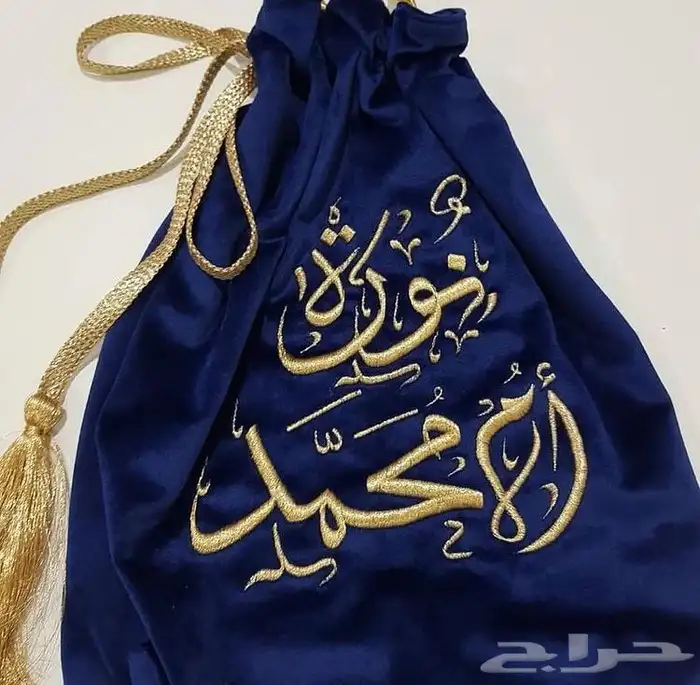 نورة
أم محمد
حراج